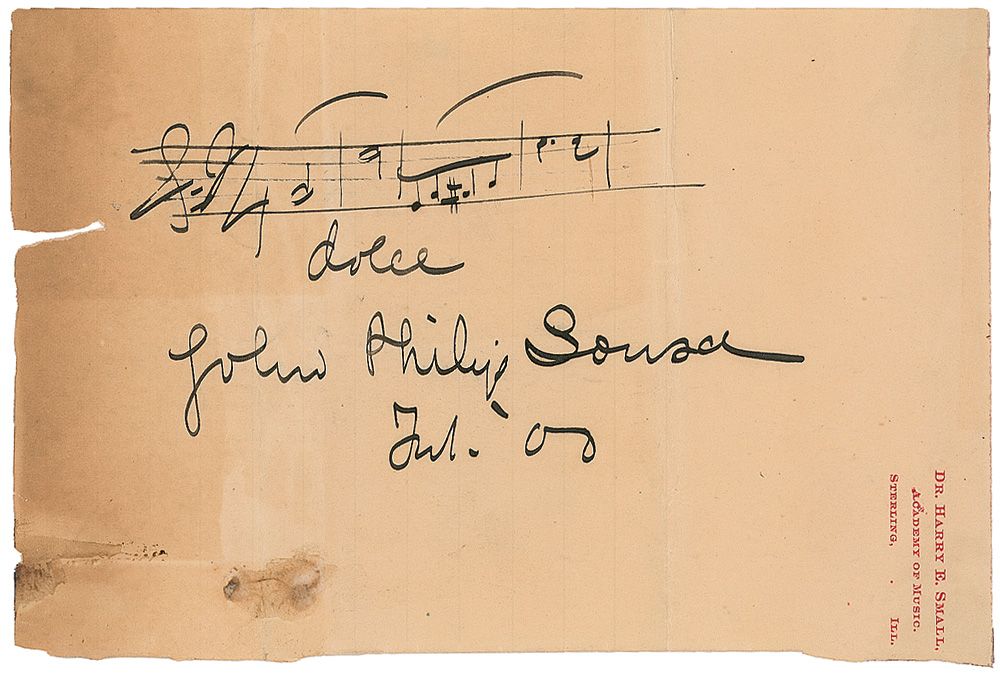 dolce
John Philip Sousa
'00
DR. HARRY E. SMALL,
ACADEMY OF MUSIC.
STERLING, . ILL.